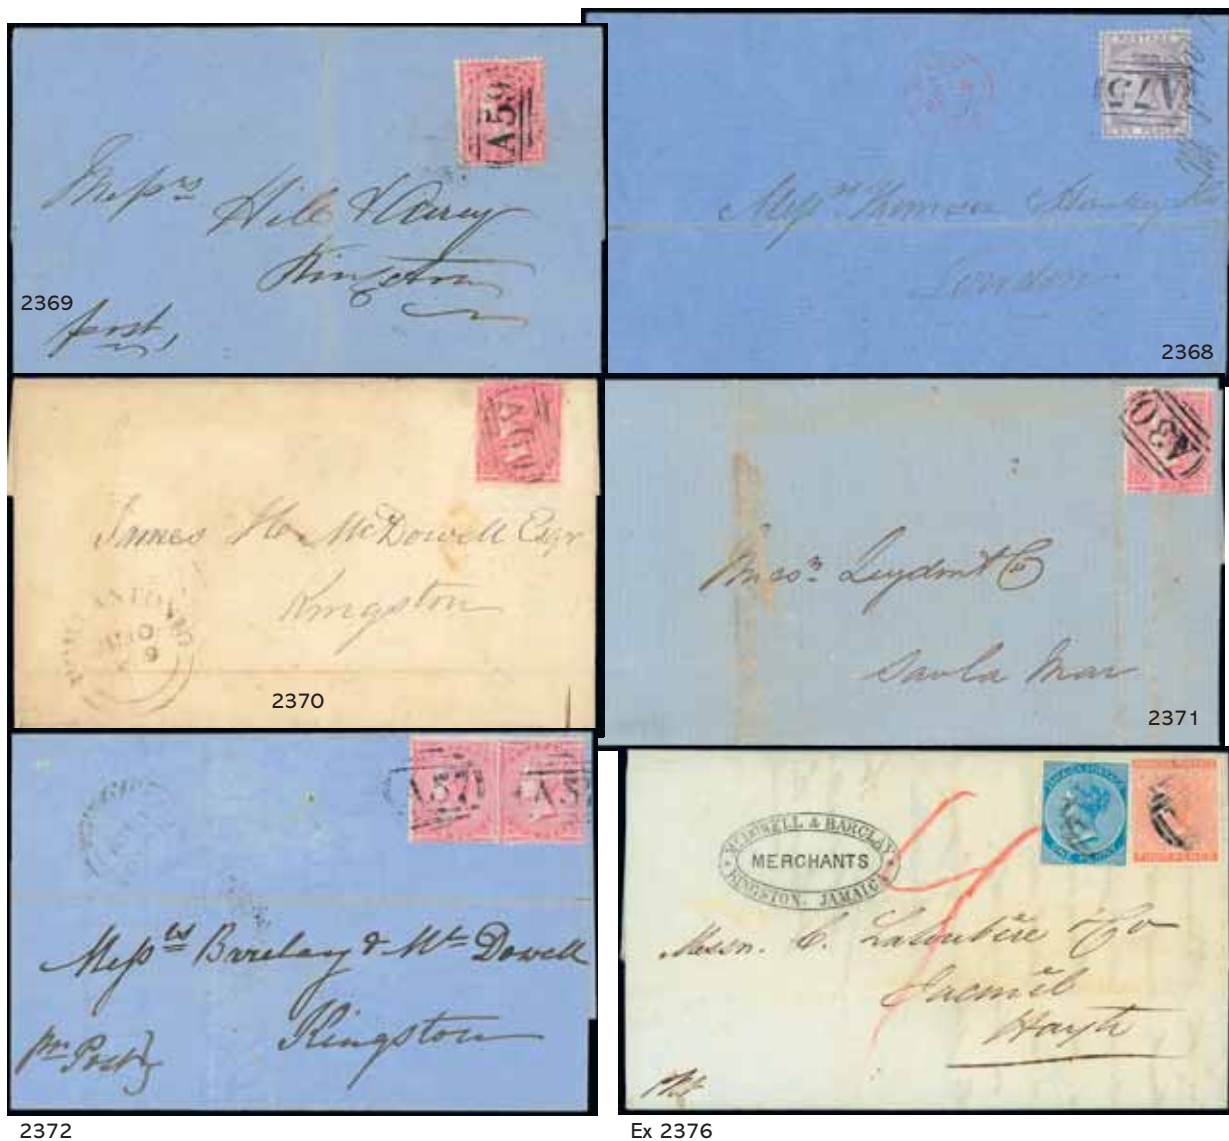 A59
Messrs Hill & Airey
Kingston
2369
post,
POSTAGE
A75
SIX PENCE
Messrs Thomson Hankey
London
2368
A69
James H. McDowell Esqr
Kingston
PORT ANTONIO
2370
A30
Messrs Leydont & Co
Savla Mar
2371
A57
A57
Messrs Barclay & McDowell
Kingston
pr Post
2372
JAMAICA POSTAGE
McDOWELL & BARCLAY
MERCHANTS
KINGSTON, JAMAICA
4
Messrs. C. Laloubère & Co
Jacmêl
Hayti
Ex 2376